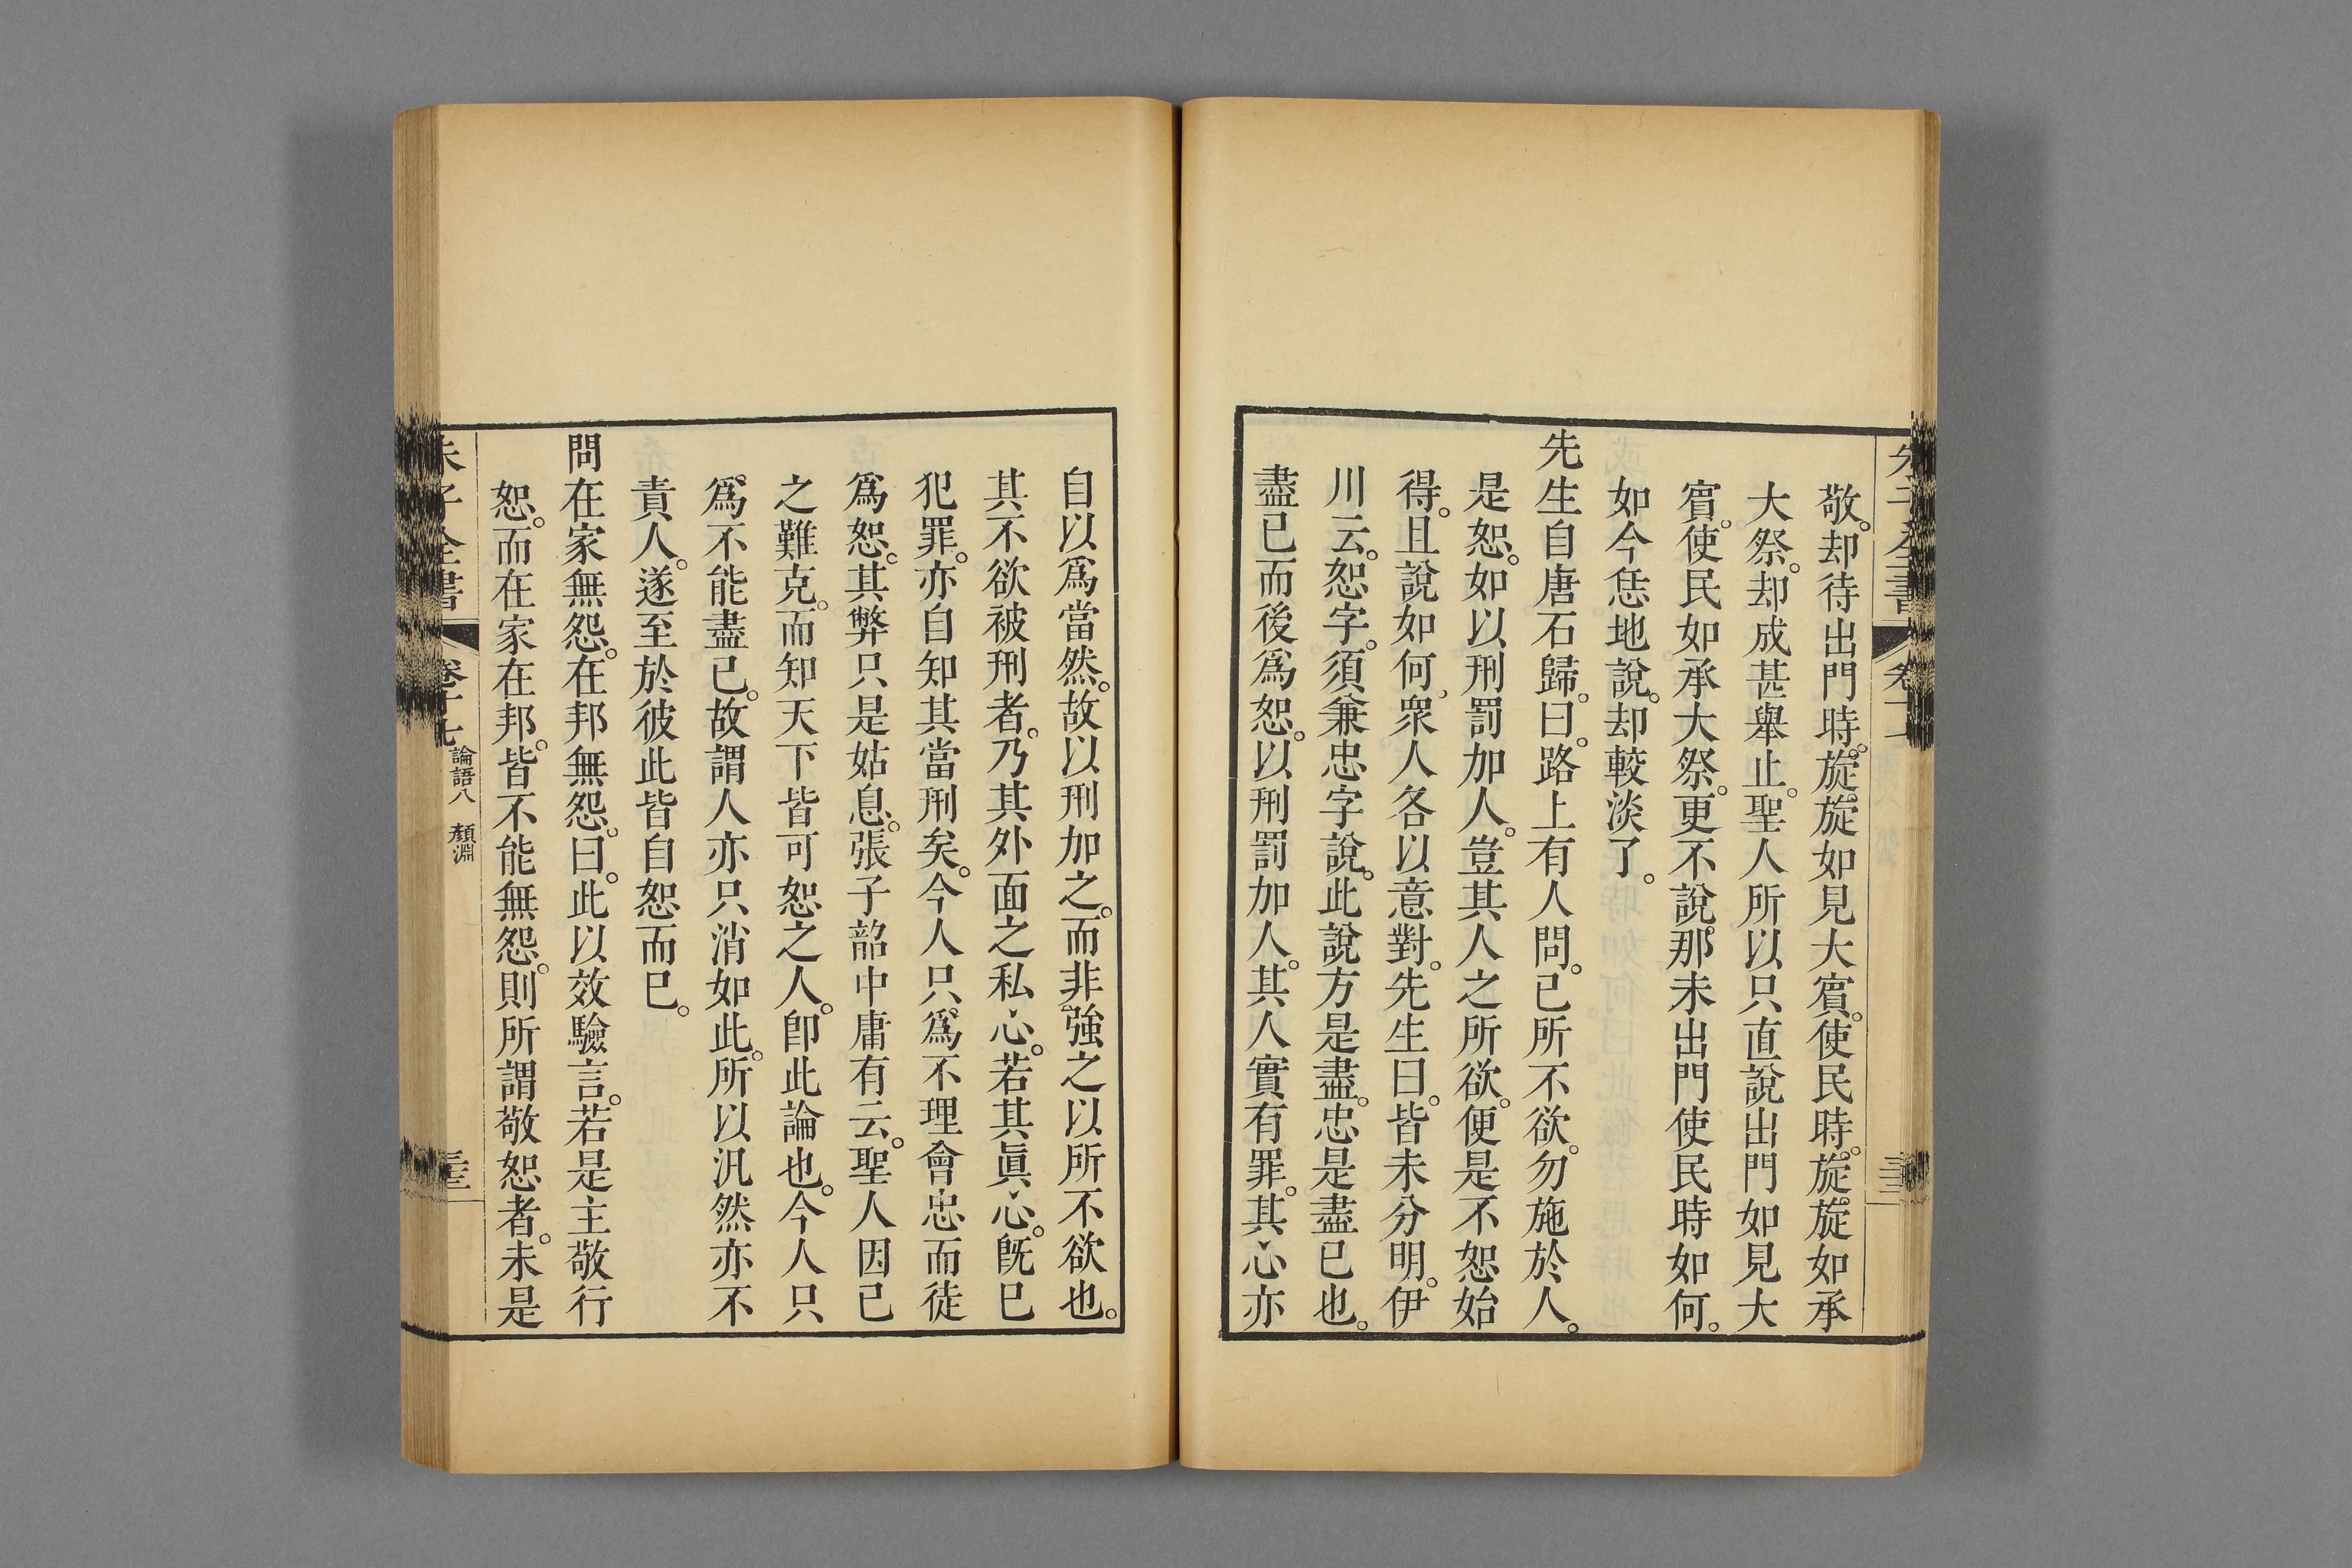 敬。却待出門時。旋旋如見大賓。使民時。旋旋如承
大祭。却成甚舉止。聖人所以只直說出門如見大
賓。使民如承大祭。更不說。那未出門使民時如何。
如今恁地說。却較淡了。
先生自唐石歸。曰。路上有人問。己所不欲。勿施於人。
是恕。如以刑罰加人。豈其人之所欲。便是不恕始
得。且說如何。衆人各以意對。先生曰。皆未分明。伊
川云。恕字。須兼忠字說。此說方是盡。忠是盡己也。
盡已而後爲恕。以刑罰加人。其人實有罪。其心亦
自以爲當然。故以刑加之。而非強之以所不欲也。
其不欲被刑者。乃其外面之私心。若其眞心。旣已
犯罪。亦自知其當刑矣。今人只爲不理會忠而徒
爲恕。其弊只是姑息。張子韶中庸有云。聖人因己
之難克。而知天下皆可恕之人。卽此論也。今人只
爲不能盡己。故謂人亦只消如此。所以汎然亦不
責人。遂至於彼此皆自恕而巳。
問在家無怨。在邦無怨。曰。此以效驗言。若是主敬行
恕。而在家在邦。皆不能無怨。則所謂敬恕者。未是
朱子全書
卷十七
論語八 顏淵